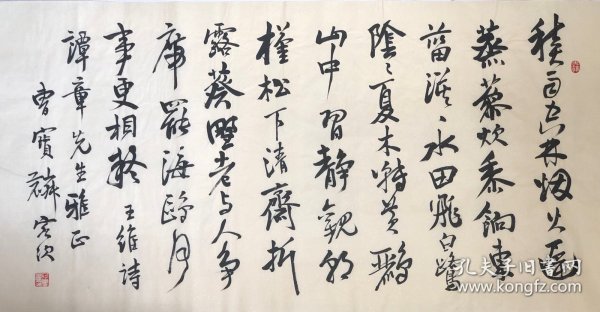 積雨空林烟火遲
蒸藜炊黍餉東
菑漠〻水田飛白鷺
陰〻夏木囀黃鸝
山中習靜觀朝
槿松下清齋折
露葵野老与人争
席罷海鷗何
事更相疑 王維詩
譚章先生雅正
曹寶麟
孔夫子旧书网
www.kongfz.com